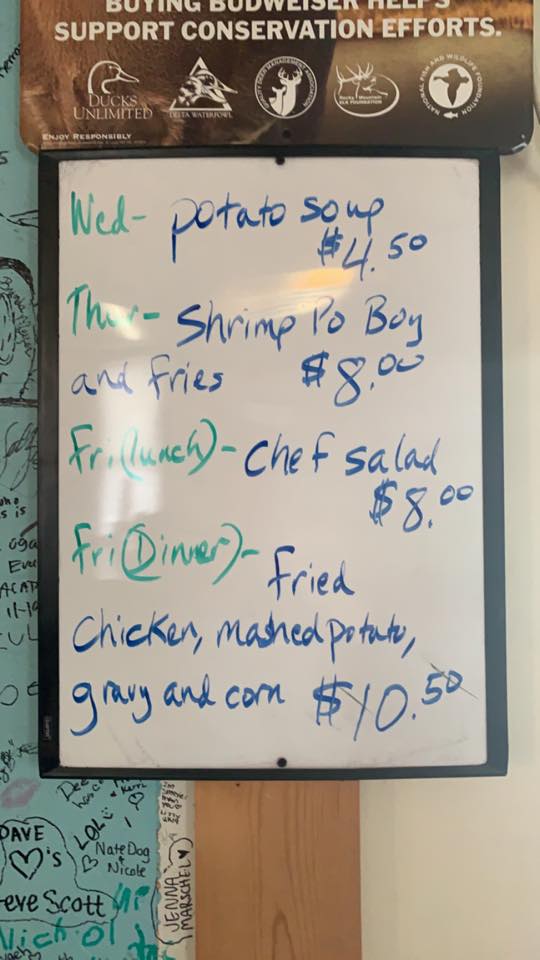 BUYING BUDWEISER HELPS
SUPPORT CONSERVATION EFFORTS.
DUCKS
UNLIMITED
DELTA WATERFOWL
QUALITY DEER MANAGEMENT ASSOCIATION
Rocky Mountain
ELK FOUNDATION
NATIONAL FISH AND WILDLIFE FOUNDATION
ENJOY RESPONSIBLY
Wed- potato soup
$4.50
Thur- Shrimp Po Boy
and fries $8.00
Fri(lunch)- Chef salad
$8.00
Fri(Dinner)- Fried
Chicken, mashed potato,
gravy and corn $10.50
DAVE
♡'s
eve Scott
LOL
NateDog
+
Nicole
JENNA
MARSCHEL